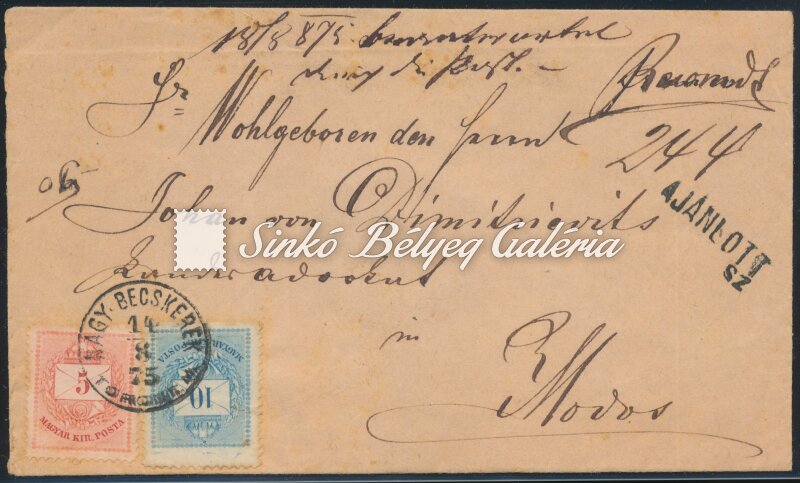 18/8 875 beantwortet
durch die Post. –
Sr
Wohlgeboren den Herrn
244
Johan von Dimitrievits
AJÁNLOTT
SZ
Sinkó Bélyeg Galéria
Landesadvokat
in
Modos
NAGY-BECSKEREK
14
8
75
TORONTÁL M.
5
MAGYAR KIR. POSTA
10
MAGYAR KIR. POSTA